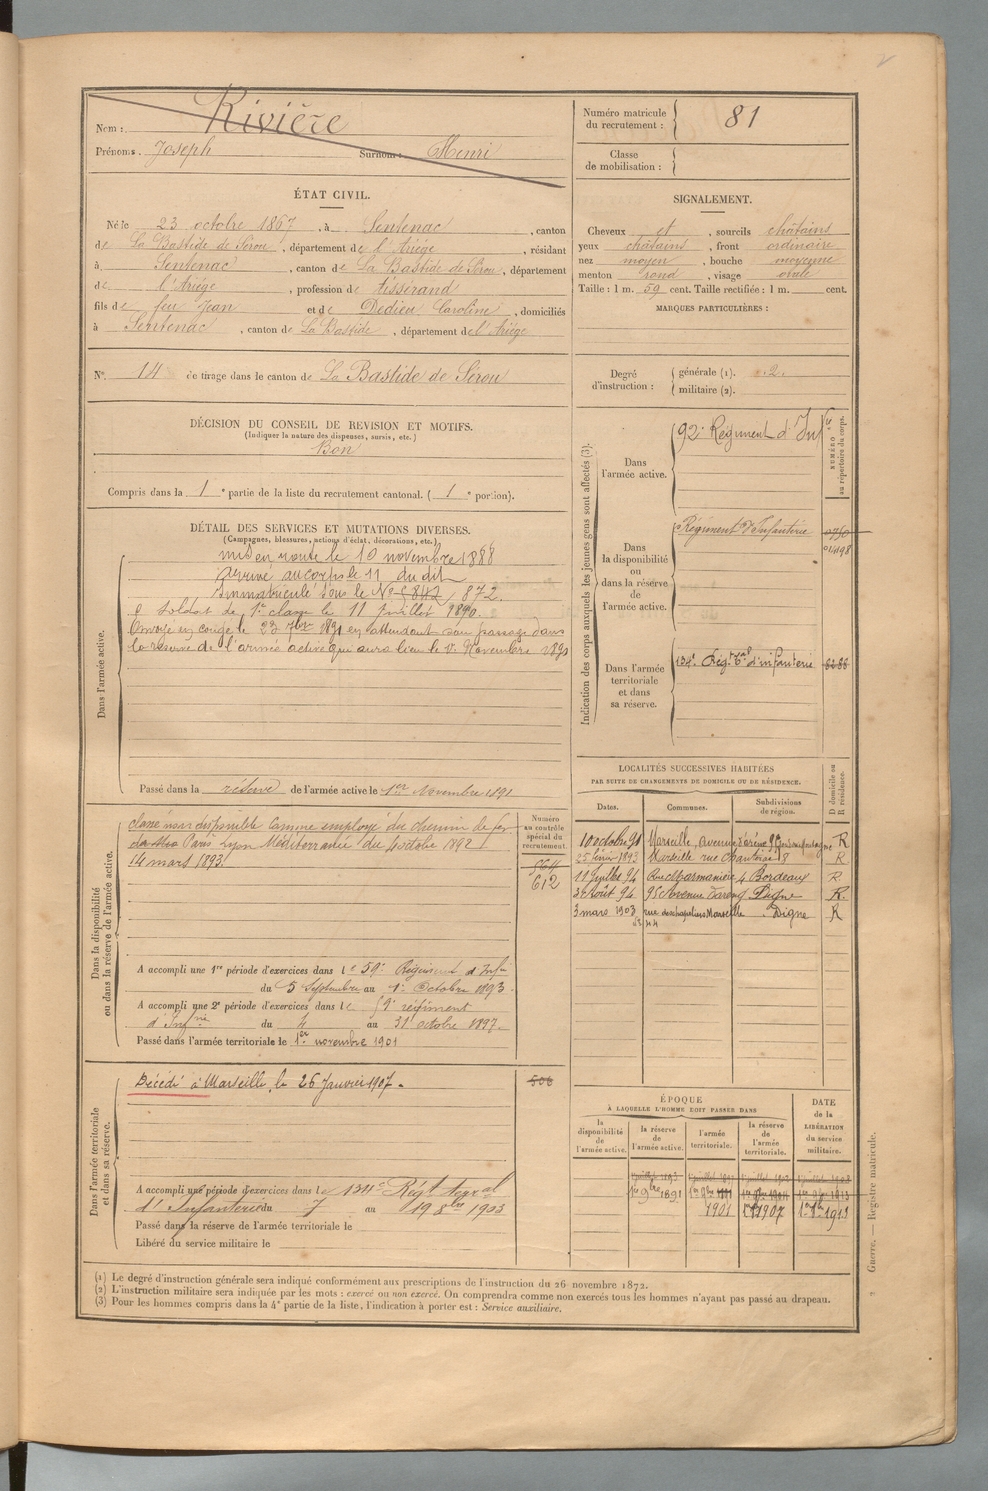 Nom : Rivière
Prénoms : Joseph Surnom : Henri
ÉTAT CIVIL.
Né le 23 octobre 1867, à Sentenac, canton
de La Bastide de Sérou, département de l'Ariége, résidant
à Sentenac, canton de La Bastide de Sérou, département
de l'Ariége, profession de tisserand
fils de feu Jean et de Dedieu Caroline, domiciliés
à Sentenac, canton de La Bastide, département de l'Ariége
N° 14 de tirage dans le canton de La Bastide de Sérou
DÉCISION DU CONSEIL DE REVISION ET MOTIFS.
(Indiquer la nature des dispenses, sursis, etc.)
Bon
Compris dans la 1e partie de la liste du recrutement cantonal. (1e portion).
DÉTAIL DES SERVICES ET MUTATIONS DIVERSES.
(Campagnes, blessures, actions d'éclat, décorations, etc.)
Dans l'armée active.
mis en route le 10 novembre 1888
arrivé au corps le 11 du dit
Immatriculé sous le N° 872.
soldat de 1e classe le 11 juillet 1890.
Envoyé en congé le 23 7bre 1891 en attendant son passage dans
la réserve de l'armée active qui aura lieu le 1er Novembre 1891
Passé dans la réserve de l'armée active le 1er Novembre 1891
Dans la disponibilité
ou dans la réserve de l'armée active.
Numéro
au contrôle
spécial du
recrutement.
564
612
classé non disponible comme employé du chemin de fer
Paris Lyon Méditerranée du octobre 1892
14 mars 1893.
A accompli une 1re période d'exercices dans le 59e Régiment d'Infie
du 5 Septembre au 1er Octobre 1893.
A accompli une 2e période d'exercices dans le 59e régiment
d'Infrie du 4 au 31 octobre 1897.
Passé dans l'armée territoriale le 1er novembre 1901
Dans l'armée territoriale
et dans sa réserve.
Décédé à Marseille, le 26 Janvier 1907.
506
A accompli une période d'exercices dans le 134e Régt terral
d'Infanterie du 7 au 19 8bre 1903
Passé dans la réserve de l'armée territoriale le
Libéré du service militaire le
Numéro matricule
du recrutement : 81
Classe
de mobilisation :
SIGNALEMENT.
Cheveux et, sourcils châtains
yeux châtains, front ordinaire
nez moyen, bouche moyenne
menton rond, visage ovale
Taille : 1 m. 59 cent. Taille rectifiée : 1 m. cent.
MARQUES PARTICULIÈRES :
Degré
d'instruction :
générale (1). 2.
militaire (2).
Indication des corps auxquels les jeunes gens sont affectés (3).
NUMÉROS
au répertoire du corps.
Dans
l'armée active.
92e Régiment d'Inf
Dans
la disponibilité
ou
dans la réserve
de
l'armée active.
Régiment d'Infanterie
Dans l'armée
territoriale
et dans
sa réserve.
134e Régt Tal d'infanterie
LOCALITÉS SUCCESSIVES HABITÉES
PAR SUITE DE CHANGEMENTS DE DOMICILE OU DE RÉSIDENCE.
Dates. Communes. Subdivisions
de région.
D domicile ou
R résidence.
10 octobre 91 Marseille, avenue d'arène R
25 février 1893 Marseille rue 8 R
11 Juillet 94 Rue Marmanière 4 Bordeaux R
3 Août 94 95 Avenue Digne R.
3 mars 1903 rue des chapeliers Marseille Digne R
44
ÉPOQUE
À LAQUELLE L'HOMME DOIT PASSER DANS
DATE
de la
LIBÉRATION
du service
militaire.
la
disponibilité
de
l'armée active.
la réserve
de
l'armée active.
l'armée
territoriale.
la réserve
de
l'armée
territoriale.
1er 9bre 1891
1901
1907
1913
Guerre. — Registre matricule.
(1) Le degré d'instruction générale sera indiqué conformément aux prescriptions de l'instruction du 26 novembre 1872.
(2) L'instruction militaire sera indiquée par les mots : exercé ou non exercé. On comprendra comme non exercés tous les hommes n'ayant pas passé au drapeau.
(3) Pour les hommes compris dans la 4e partie de la liste, l'indication à porter est : Service auxiliaire.